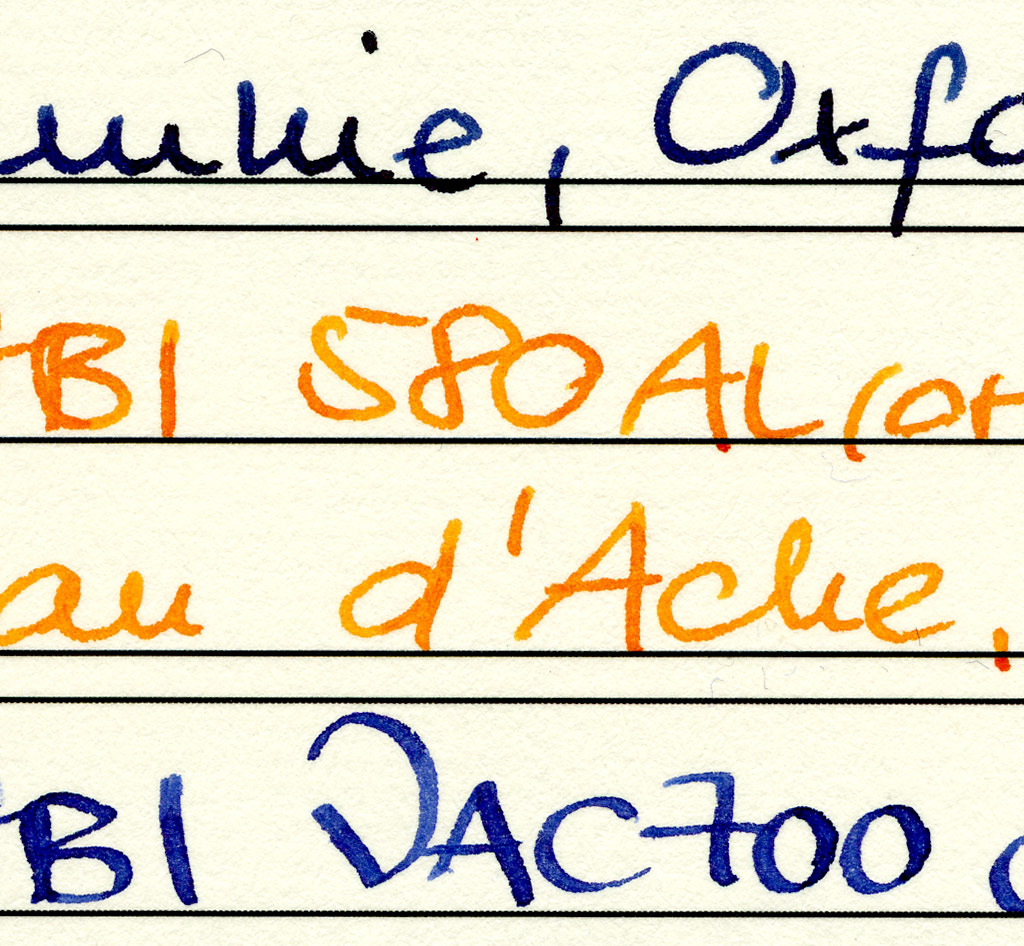 , Oxfo
BI 580 AL (or
au d'Ache,
BI VAC700